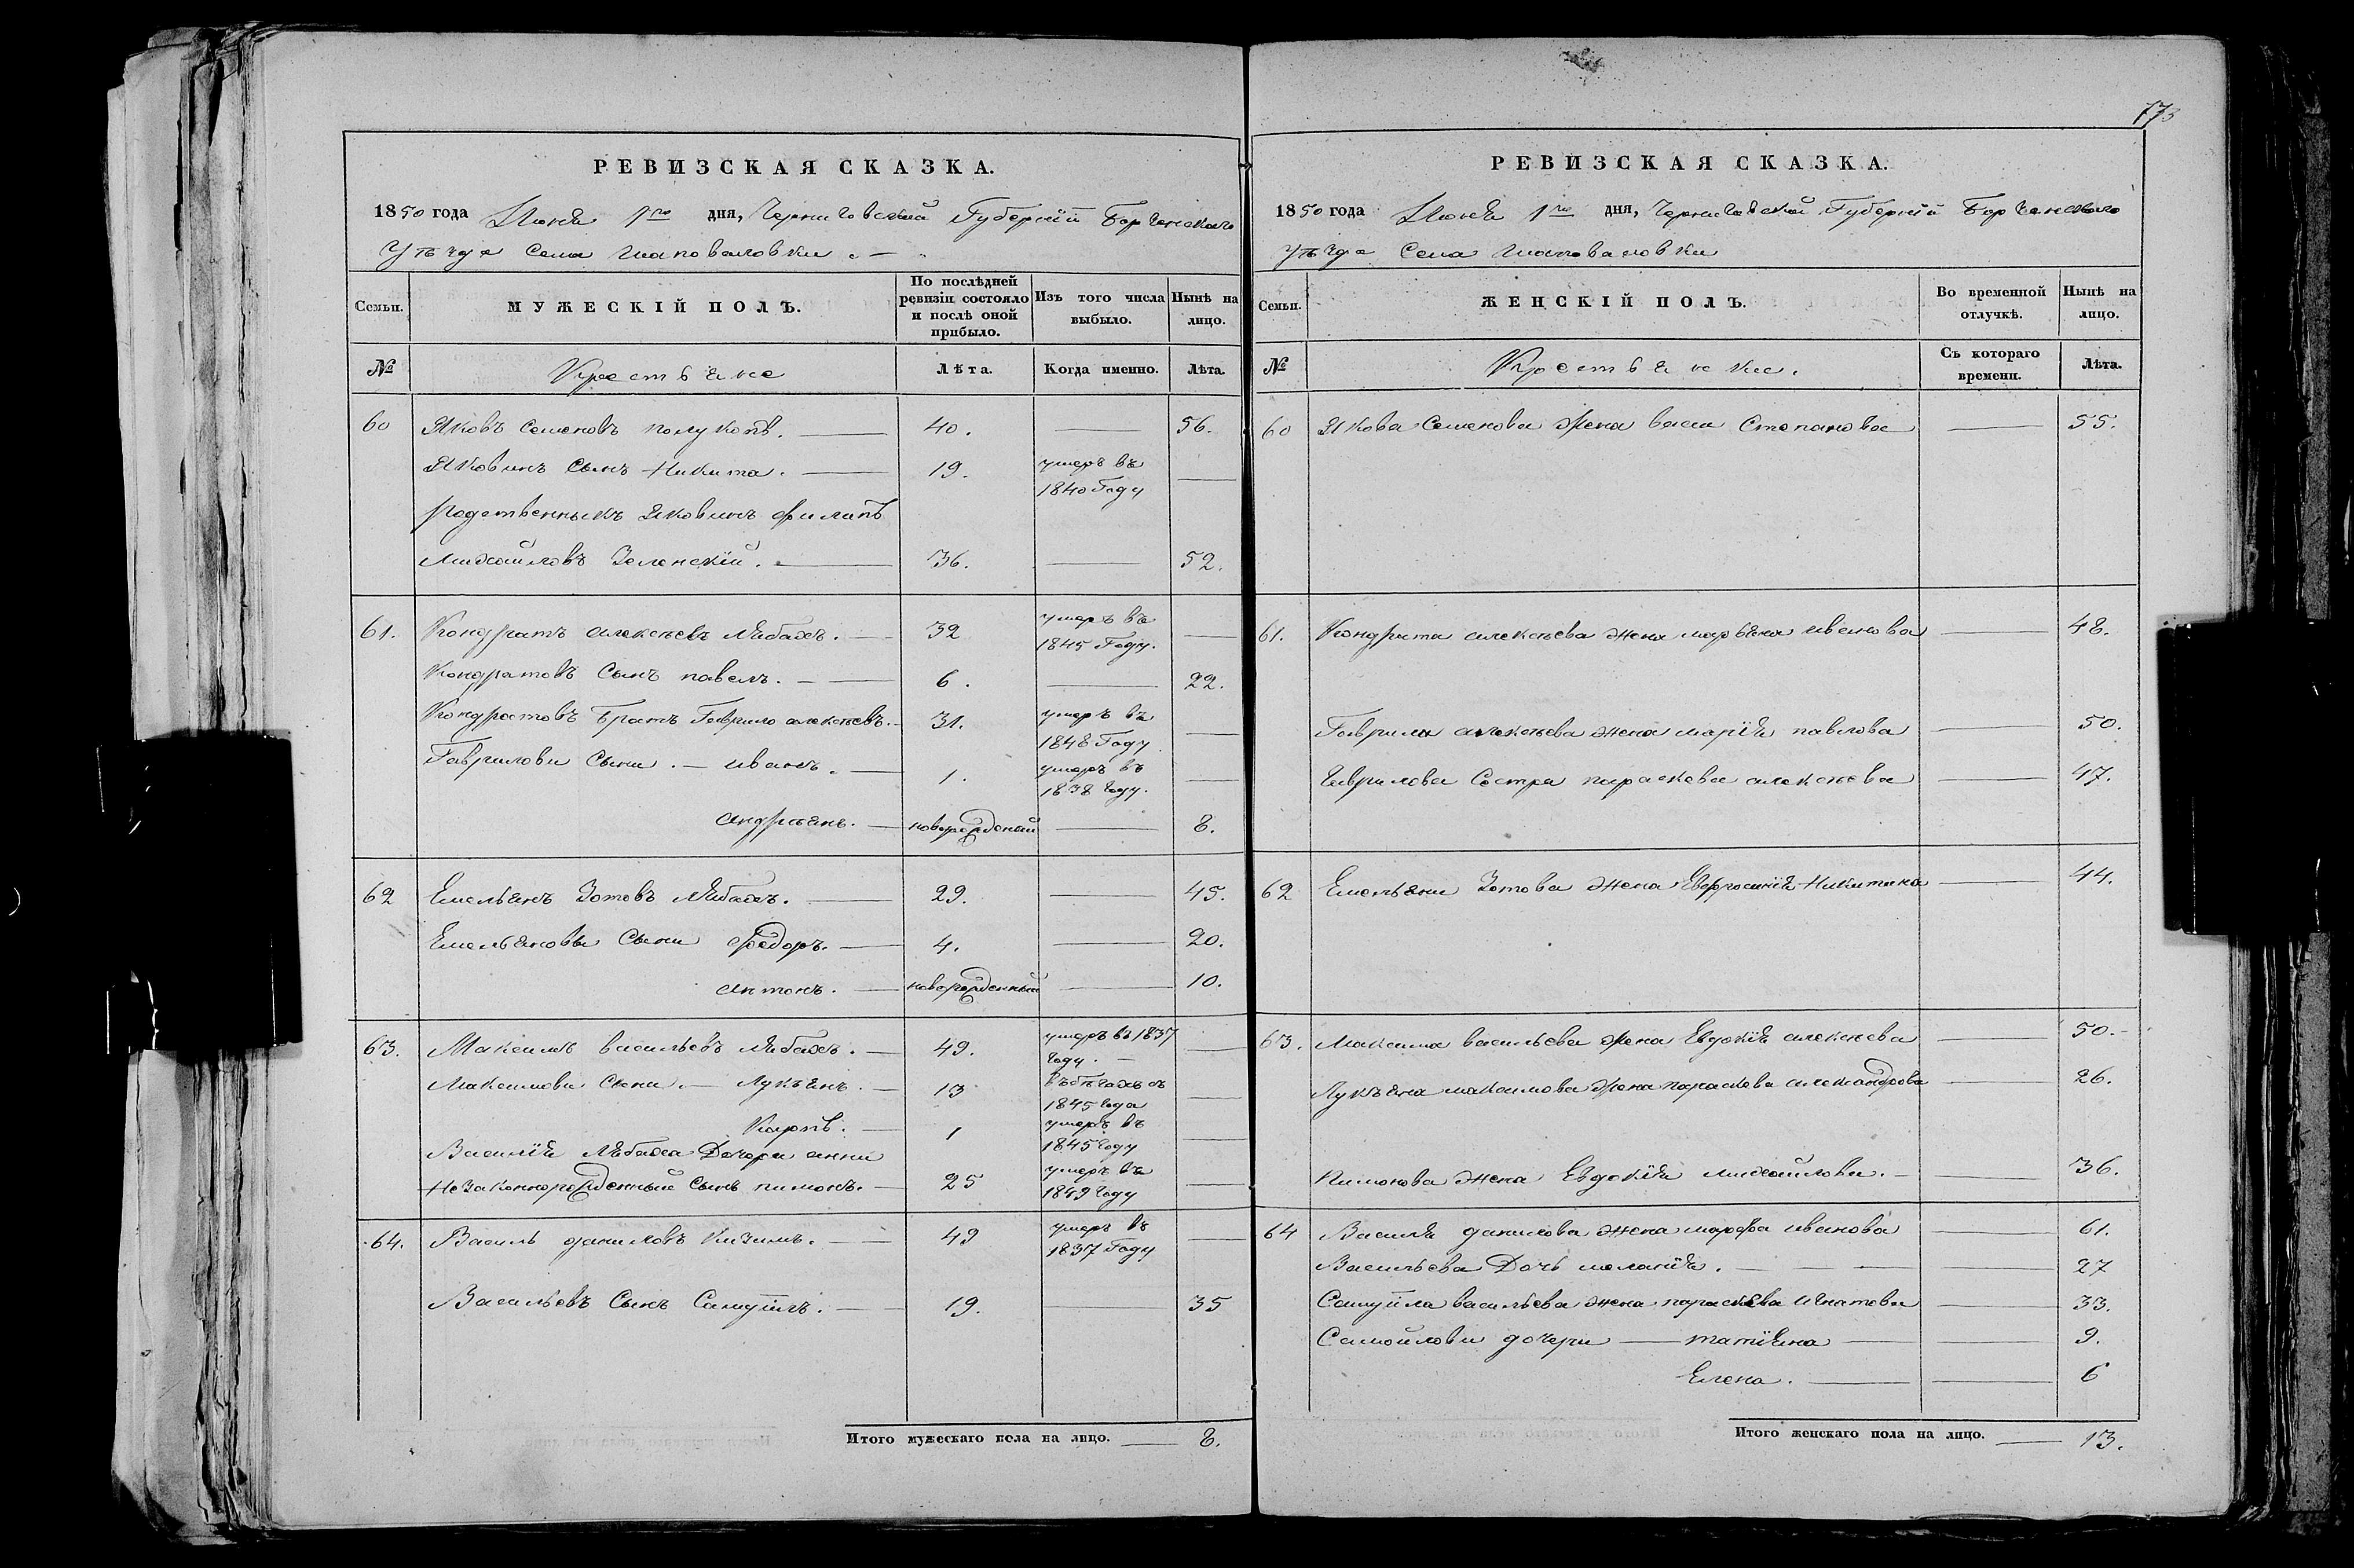 РЕВИЗСКАЯ СКАЗКА.
1850 года Июня 1го дня, Черниговской Губернїи Борзенскаго
Уѣзда Села Шаповаловки
Семьи. МУЖЕСКІЙ ПОЛЪ. По послѣдней ревизіи состояло и послѣ оной прибыло. Изъ того числа выбыло. Нынѣ на лицо.
№ Крестьяне Лѣта. Когда именно. Лѣта.
60 Яковъ Семеновъ 40. 56.
Яковинъ Сынъ Никита. 19. умеръ въ 1840 Году
родственникъ Яковинъ Филипъ
Михайловъ Зеленскїй. 36. 52.
61. Кондратъ алексѣевъ 32 умеръ въ 1845 Году.
Кондратовъ Сынъ павелъ. 6. 22.
Кондратовъ Братъ Гаврило алексѣевъ. 31. умеръ въ 1848 Году
Гавриловы Сыны. иванъ. 1. умеръ въ 1838 году.
андрѣянъ. новорожденый 8.
62 Емельянъ Зотовъ 29. 45.
Емельяновы Сыны Федоръ. 4. 20.
антонъ. новорожденный 10.
63. Максимъ васильевъ 49. умеръ въ 1837 году.
Максимовы Сыны. Лукъянъ. 13 въ бѣгахъ съ 1845 года
Карпъ. 1 умеръ въ 1845 году
Василїя Дочери анны
Незаконнорожденный Сынъ пимонъ. 25 умеръ въ 1849 году
64. Василь даниловъ Кизимъ. 49 умеръ въ 1837 Году
Васильевъ Сынъ Самуйлъ. 19. 35
Итого мужескаго пола на лицо. 8.
773
РЕВИЗСКАЯ СКАЗКА.
1850 года Июня 1го дня, Черниговской Губернїи Борзенскаго
Уѣзда Села Шаповаловки
Семьи. ЖЕНСКІЙ ПОЛЪ. Во временной отлучкѣ. Нынѣ на лицо.
№ Крестьянки. Съ котораго времени. Лѣта.
60 Якова Семенова Жена васса Степановa 55.
61. Кондрата алексѣева жена марьяна иванова 48.
Гаврила алексѣева жена марїя павлова 50.
Гаврилова Сестра параскева алексѣева 47.
62 Емельяна Зотова жена Евфросинїя Никитина 44.
63. Максима васильева Жена Евдокїя алексѣева 50.
Лукъяна максимова Жена параскева александрова 26.
Пимонова жена Евдокїя михайлова. 36.
64 Василя данилова жена марфа иванова 61.
Васильева Дочь меланїя. 27
Самуйла васильева жена параскева игнатова 33.
Самойловы дочери татїяна 9.
Елена. 6
Итого женскаго пола на лицо. 13.